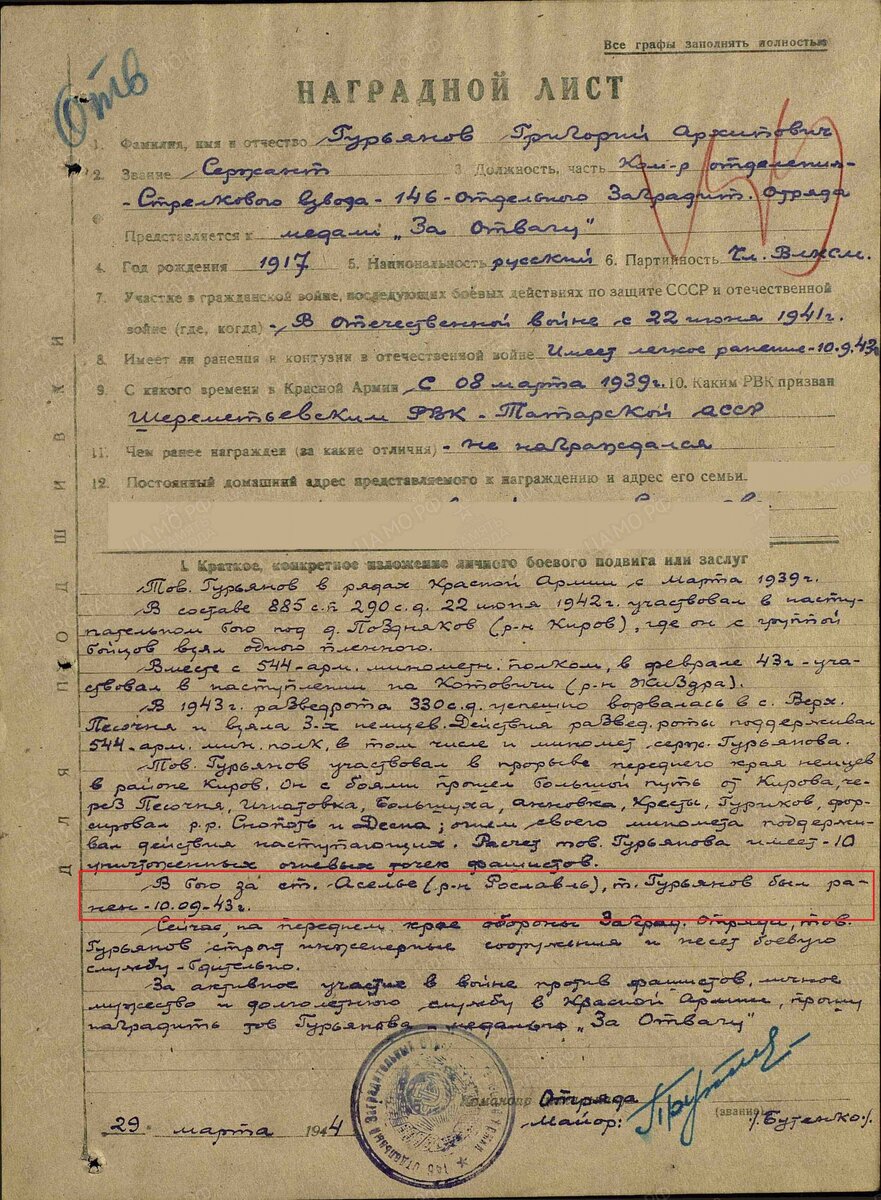 Все графы заполнять полностью
Отв
НАГРАДНОЙ ЛИСТ
1. Фамилия, имя и отчество Гурьянов Григорий Архипович
2. Звание Сержант 3. Должность, часть Ком-р отделения-
-Стрелкового взвода-146-Отдельного Заградит. Отряда
Представляется к медали „За Отвагу"
4. Год рождения 1917 5. Национальность русский 6. Партийность Чл. Влксм.
7. Участие в гражданской войне, последующих боевых действиях по защите СССР и отечественной
войне (где, когда) - В Отечественной войне с 22 июня 1941г.
8. Имеет ли ранения и контузии в отечественной войне Имеет легкое ранение-10.9.43г
9. С какого времени в Красной Армии С 08 марта 1939г. 10. Каким РВК призван
Шереметьевским РВК - Татарской АССР
11. Чем ранее награжден (за какие отличия) - не награждался
12. Постоянный домашний адрес представляемого к награждению и адрес его семьи.
ДЛЯ ПОДШИВКИ
I. Краткое, конкретное изложение личного боевого подвига или заслуг
Тов. Гурьянов в рядах Красной Армии с Марта 1939г.
В составе 885 с.п 290 с.д. 22 июня 1942г. участвовал в насту-
пательном бою под д. Поздняков (р-н Киров), где он с группой
бойцов взял одного пленного.
Вместе с 544-арм. минометн. полком, в феврале 43г-уча-
ствовал в наступлении на Котовичи (р-н Жиздра).
В 1943г. разведрота 330 с.д. успешно ворвалась в с. Верх.
Песочня и взяла 3-х немцев. Действия развед. роты поддерживал
544-арм. мин. полк, в том числе и миномет серж. Гурьянова.
Тов. Гурьянов участвовал в прорыве переднего края немцев
в районе Киров. Он с боями прошел большой путь от Кирова, че-
рез Песочня, Игнатовка, Большуха, Анновка, Кресты, Гуриков, фор-
сировал р.р. Снопоть и Десна; огнем своего миномета поддержи-
вал действия наступающих. Расчет тов. Гурьянова имеет-10
уничтоженных огневых точек фашистов.
В бою за ст. Аселье (р-н Рославль), т. Гурьянов был ра-
нен-10.09-43г.
Сейчас, на переднем крае обороны Заград. Отряда, тов.
Гурьянов строит инженерные сооружения и несет боевую
службу-бдительно.
За активное участие в войне против фашистов, личное
мужество и долголетнюю службу в Красной Армии, прошу
наградить тов Гурьянова - медалью „За Отвагу"
Командир Отряда
Майор: (звание) /. Бутенко./.
29 марта 1944
146 ОТДЕЛЬНЫЙ Заградительный